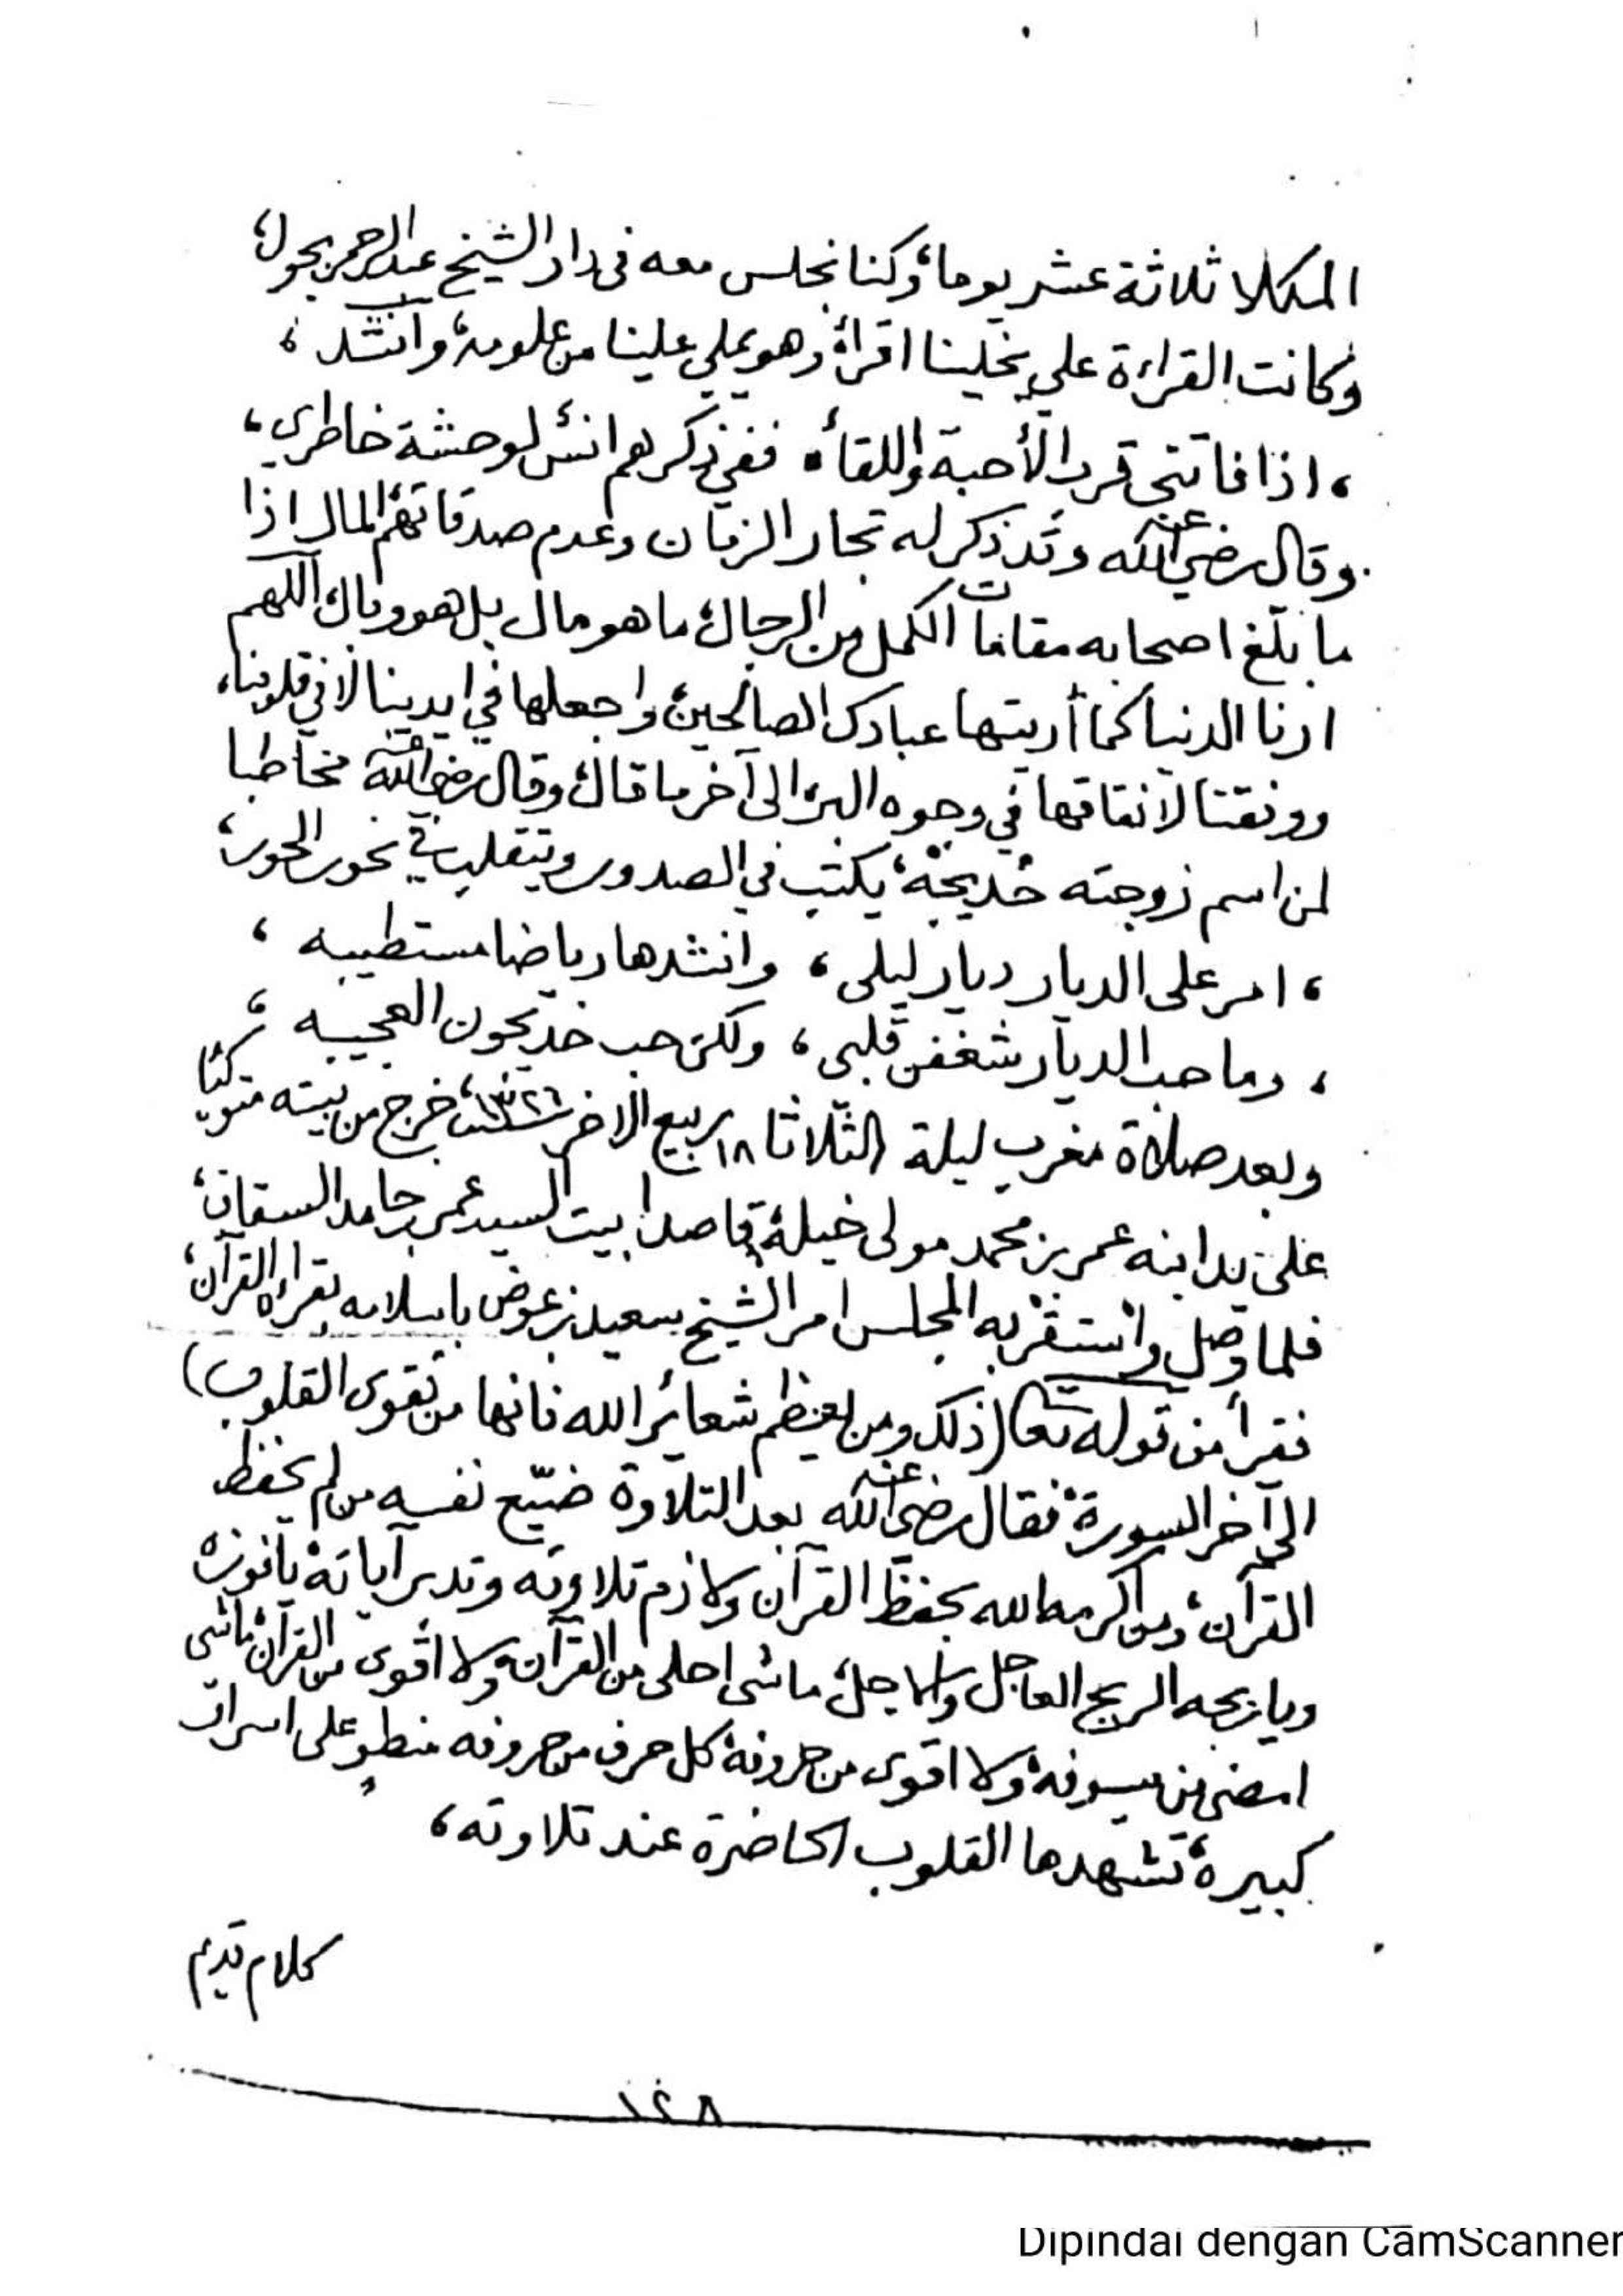 المكلا ثلاثة عشر يوما، وكنا نجلس معه فى دار الشيخ عبدالرحمن بحول،
وكانت القراءة علي يخلينا اقرأ، وهو يملي علينا من علومه، وانشد،
، اذا فاتتني قرب الأحبة واللقاء ، ففي ذكرهم انس لوحشة خاطري،
وقال رضي الله عنه وقد ذكر له تجار الزمان وعدم صدقاتهم، المال اذا
ما بلّغ اصحابه مقامات الكمل من الرجال، ما هو مال بل هو وبال، اللهم
ارنا الدنيا كما أريتها عبادك الصالحين، واجعلها في ايدينا لا في قلوبنا،
ووفقنا لانفاقها في وجوه البر، الى آخر ما قال، وقال رضي الله عنه مخاطبا
لمن اسم زوجته خديجة، يكتب في الصدور وتتقلب في نحور الحور،
، امر على الديار ديار ليلى ، وانشدها رياضا مستطيبه ،
، وما حب الديار شغفن قلبي ، ولكن حب خديجون العجيبه ،
وبعد صلاة مغرب ليلة الثلاثا ١٨ ربيع الاخر سنة ١٣٢٦، خرج من بيته متوكئا
على يد ابنه عمر بن محمد مولى خيلة، قاصدا بيت السيد عمر بن حامد السقاف،
فلما وصل واستقر به المجلس امر الشيخ سعيد بن عوض باسلامه بقراءة القرآن،
فقرأ من قوله تعالى (ذلك ومن يعظم شعائر الله فانها من تقوى القلوب)
الى آخر السورة، فقال رضي الله عنه بعد التلاوة ضيّع نفسه من لم يحفظ
القرآن، ومن اكرمه الله بحفظ القرآن ولازم تلاوته وتدبر آياته يافوزه
وياربحه الربح العاجل والاجل، ماشى احلى من القرآن، ولا اقوى من القرآن، ماشى
امضى من سيوفه، ولا اقوى من حروفه، كل حرف من حروفه منطوٍ على اسرار
كبيرة، تشهدها القلوب الحاضرة عند تلاوته،
كلام قديم
١٤٨
Dipindai dengan CamScanner